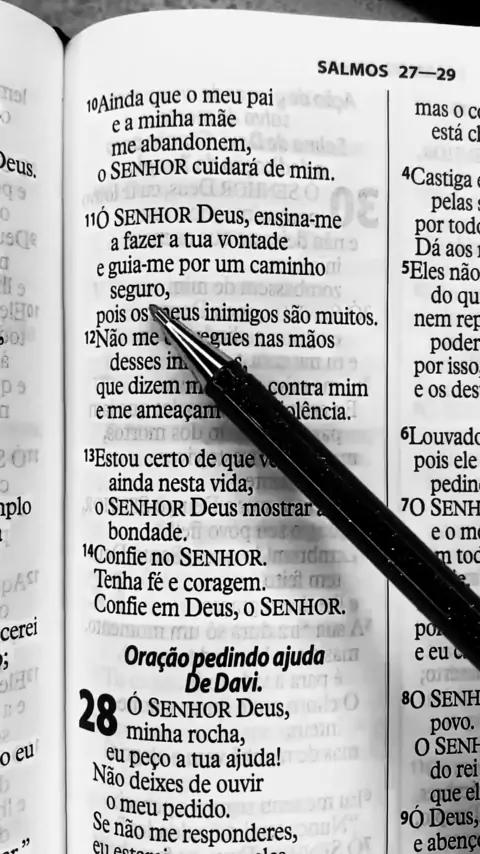 SALMOS 27—29
Deus.
mplo
cerei
o;
o eu
.”
10Ainda que o meu pai
e a minha mãe
me abandonem,
o SENHOR cuidará de mim.
11Ó SENHOR Deus, ensina-me
a fazer a tua vontade
e guia-me por um caminho
seguro,
pois os meus inimigos são muitos.
12Não me gues nas mãos
desses
que dizem contra mim
e me ameaçam
13Estou certo de que
ainda nesta vida,
o SENHOR Deus mostrar
bondade.
14Confie no SENHOR.
Tenha fé e coragem.
Confie em Deus, o SENHOR.
Oração pedindo ajuda
De Davi.
28 Ó SENHOR Deus,
minha rocha,
eu peço a tua ajuda!
Não deixes de ouvir
o meu pedido.
Se não me responderes,
mas o c
está c
4Castiga
pelas
por tod
Dá aos
5Eles não
do qu
nem rep
poder
por isso,
e os des
6Louvado
pois ele
pedin
7O SENH
e o m
tod
e eu
8O SENH
povo.
O SENH
do rei
que el
9Ó Deus,
e abenç